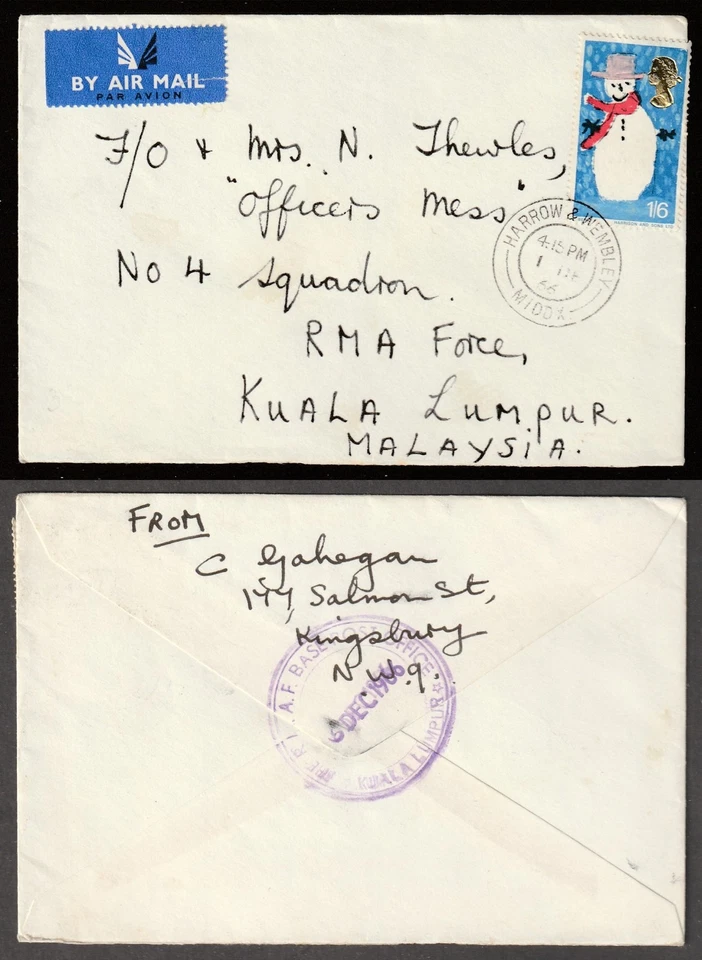 BY AIR MAIL
PAR AVION
1/6
HARRISON AND SONS LTD
HARROW & WEMBLEY
4.15 PM
1 DE
66
MIDDX.
F/O + Mrs. N. Thewles,
"Officers Mess"
No 4 Squadron.
RMA Force,
KUALA LUMPUR.
MALAYSIA.
FROM
C Gahegan
177, Salmon St,
Kingsbury
N.W.9.
A.F. BASE POST OFFICE
6 DEC 1966
KUALA LUMPUR